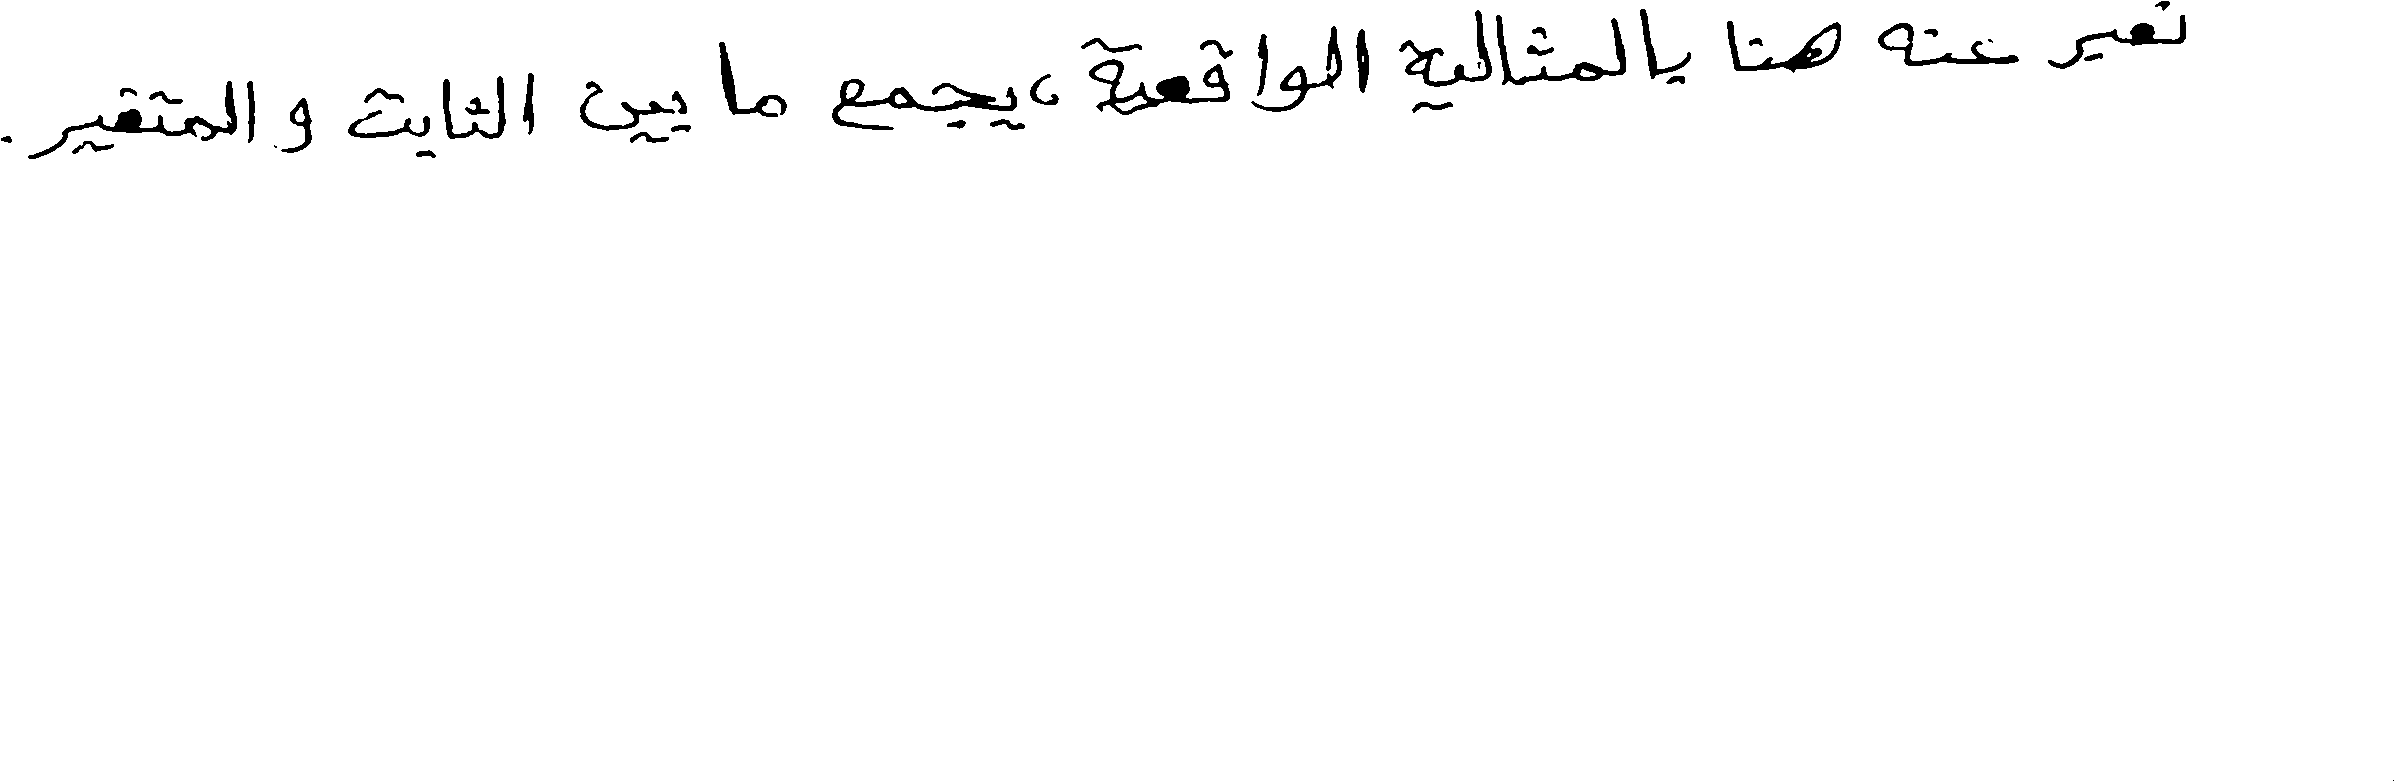 نعبر عنه هنا بالمثالية الواقعية ، يجمع ما بين الثابت و المتغير .